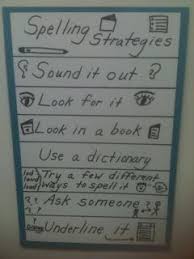 Spelling
Strategies
? Sound it out ?
Look for it
Look in a book
Use a dictionary
Try a few different
ways to spell it
? ? Ask someone ?
Underline it